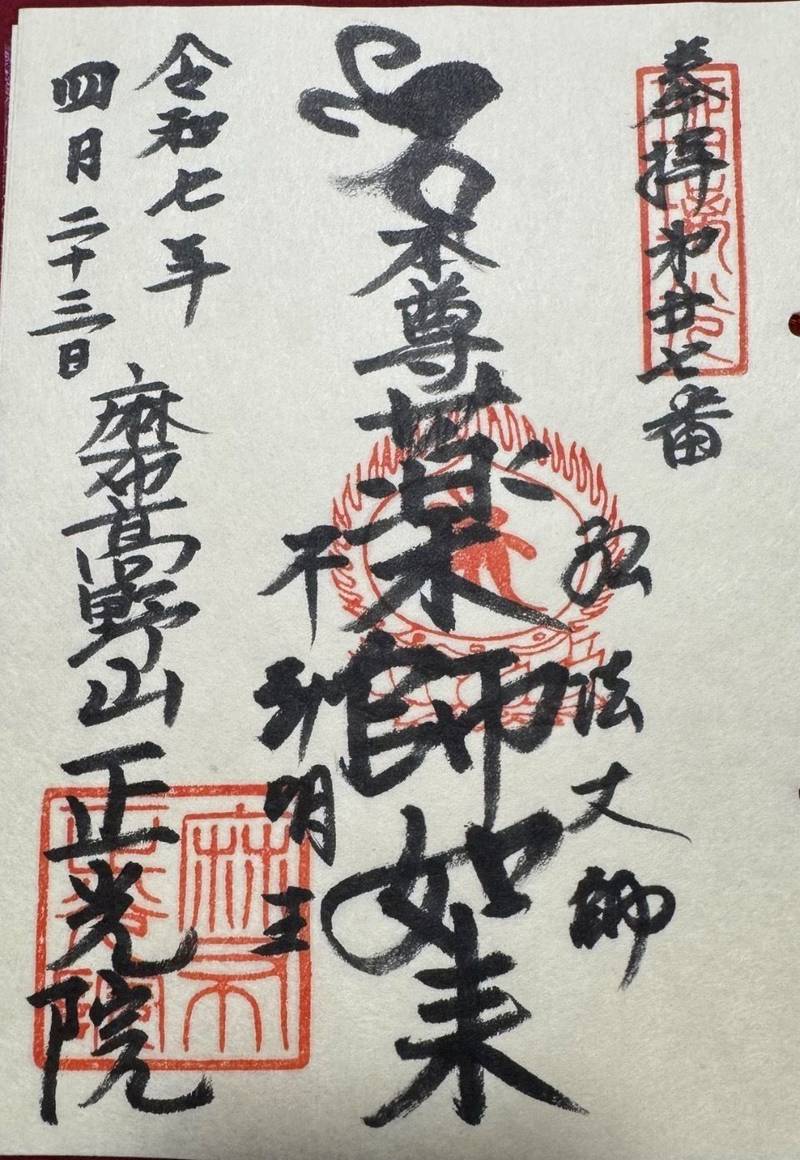 奉拝第廿七番
弘法大師
本尊薬師如来
不動明王
令和七年
四月二十三日
麻布高野山正光院
麻布